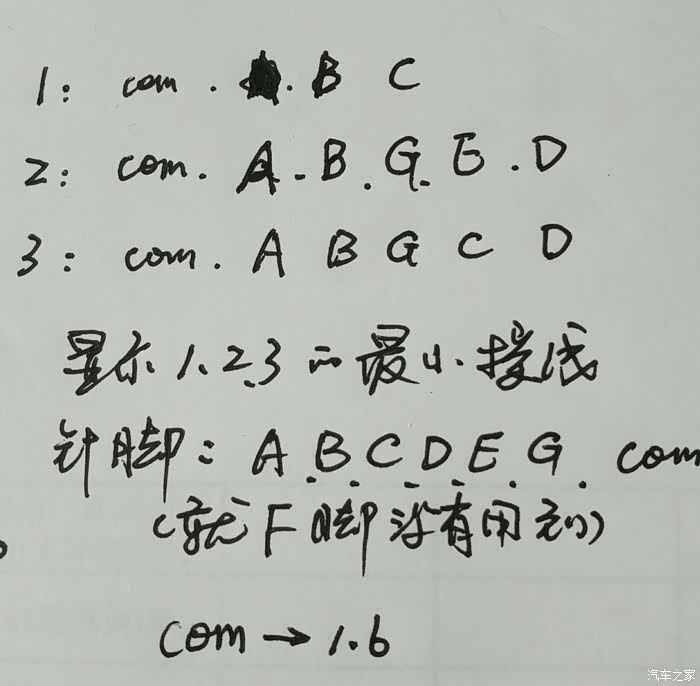 1: com . B C
2: com. A. B. G. E. D
3: com. A B G C D
显示1.2.3的最小接线
针脚: A. B. C. D. E. G. com
(就F脚没有用到)
com→1.6
汽车之家